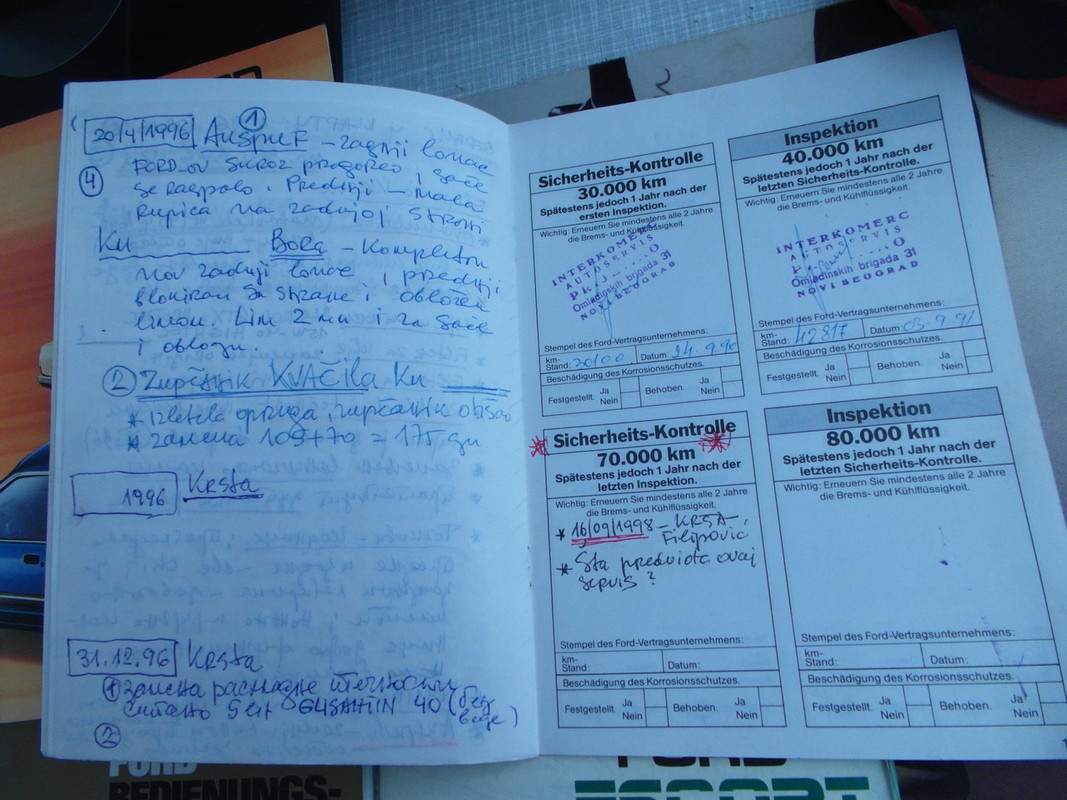 1
20/4/1996 AUSPUF – zadnji lonac
FORD-OV skroz progoreo, sače
4
se raspalo. Prednji – mala
rupica na zadnjoj strani
Ku Bora – kompletn
nov zadnji lonac, i prednji
blokiran sa strane i obložen
limom. Lim 2 mm i za sače
i oblogu.
2 Zupčanik KVAČILA Ku
* izletela opruga, zupčanik
* zamena 105+70 = 175 din
1996 Krsta
31.12.96 Krsta
1 Замена расхладне течности
Glysantin 40 (без
воде)
2
Sicherheits-Kontrolle
30.000 km
Spätestens jedoch 1 Jahr nach der
ersten Inspektion.
Wichtig: Erneuern Sie mindestens alle 2 Jahre
die Brems- und Kühlflüssigkeit.
INTERKOMERC
AUTOSERVIS
Omladinskih brigada 31
NOVI BEOGRAD
Stempel des Ford-Vertragsunternehmens:
km-
Stand: 20100 Datum: 9.90
Beschädigung des Korrosionsschutzes.
Festgestellt. Ja Nein Behoben. Ja Nein
Inspektion
40.000 km
Spätestens jedoch 1 Jahr nach der
letzten Sicherheits-Kontrolle.
Wichtig: Erneuern Sie mindestens alle 2 Jahre
die Brems- und Kühlflüssigkeit.
INTERKOMERC
AUTOSERVIS
Omladinskih brigada 31
NOVI BEOGRAD
Stempel des Ford-Vertragsunternehmens:
km-
Stand: 42817 Datum: 03.9.91
Beschädigung des Korrosionsschutzes.
Festgestellt. Ja Nein Behoben. Ja Nein
Sicherheits-Kontrolle
70.000 km
Spätestens jedoch 1 Jahr nach der
letzten Inspektion.
Wichtig: Erneuern Sie mindestens alle 2 Jahre
die Brems- und Kühlflüssigkeit.
* 16/09/1998 – KRSTA
Filipović
* Šta predviđa ovaj
servis?
Stempel des Ford-Vertragsunternehmens:
km-
Stand: Datum:
Beschädigung des Korrosionsschutzes.
Festgestellt. Ja Nein Behoben. Ja Nein
Inspektion
80.000 km
Spätestens jedoch 1 Jahr nach der
letzten Sicherheits-Kontrolle.
Wichtig: Erneuern Sie mindestens alle 2 Jahre
die Brems- und Kühlflüssigkeit.
Stempel des Ford-Vertragsunternehmens:
km-
Stand: Datum:
Beschädigung des Korrosionsschutzes.
Festgestellt. Ja Nein Behoben. Ja Nein
FORD
BEDIENUNGS-
FORD
ESCORT